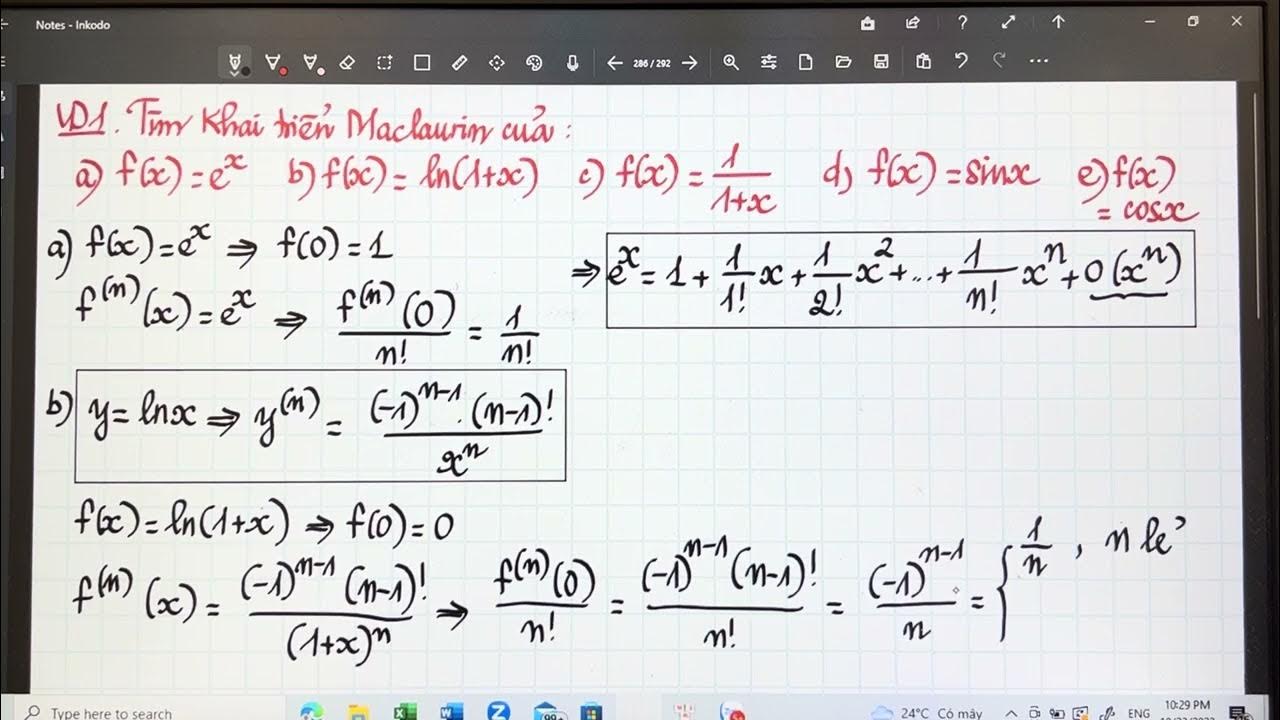 Notes - Inkodo
286 / 292
VD1. Tìm Khai triển Maclaurin của :
a) f(x) = e^x b) f(x) = ln(1+x) c) f(x) = 1/(1+x) d) f(x) = sinx e) f(x) = cosx
a) f(x) = e^x ⇒ f(0) = 1
f^(n)(x) = e^x ⇒ f^(n)(0)/n! = 1/n!
⇒ e^x = 1 + 1/1! x + 1/2! x^2 + ... + 1/n! x^n + 0(x^n)
b) y = lnx ⇒ y^(n) = (-1)^(n-1) . (n-1)! / x^n
f(x) = ln(1+x) ⇒ f(0) = 0
f^(n)(x) = (-1)^(n-1) (n-1)! / (1+x)^n ⇒ f^(n)(0)/n! = (-1)^(n-1) (n-1)! / n! = (-1)^(n-1) / n = { 1/n , n lẻ
Type here to search
99+
24°C Có mây
ENG
10:29 PM